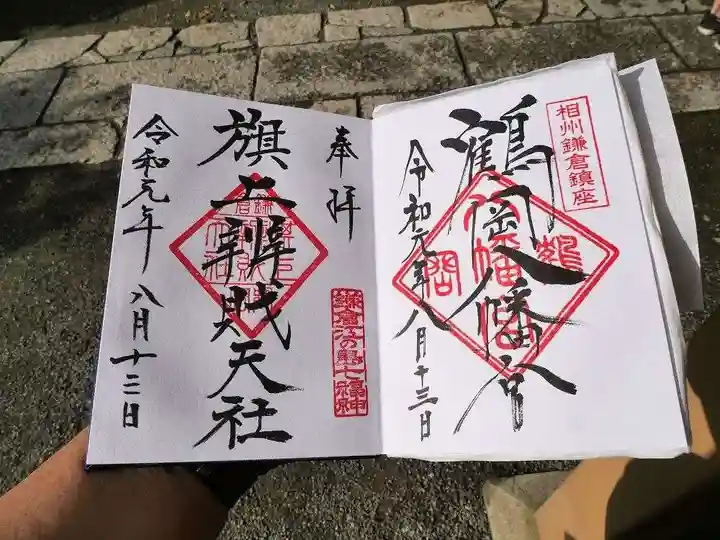 相州鎌倉鎮座
鶴岡八幡宮
令和元年八月十三日
奉拝
鎌倉江の島七福神
旗上辨財天社
令和元年八月十三日